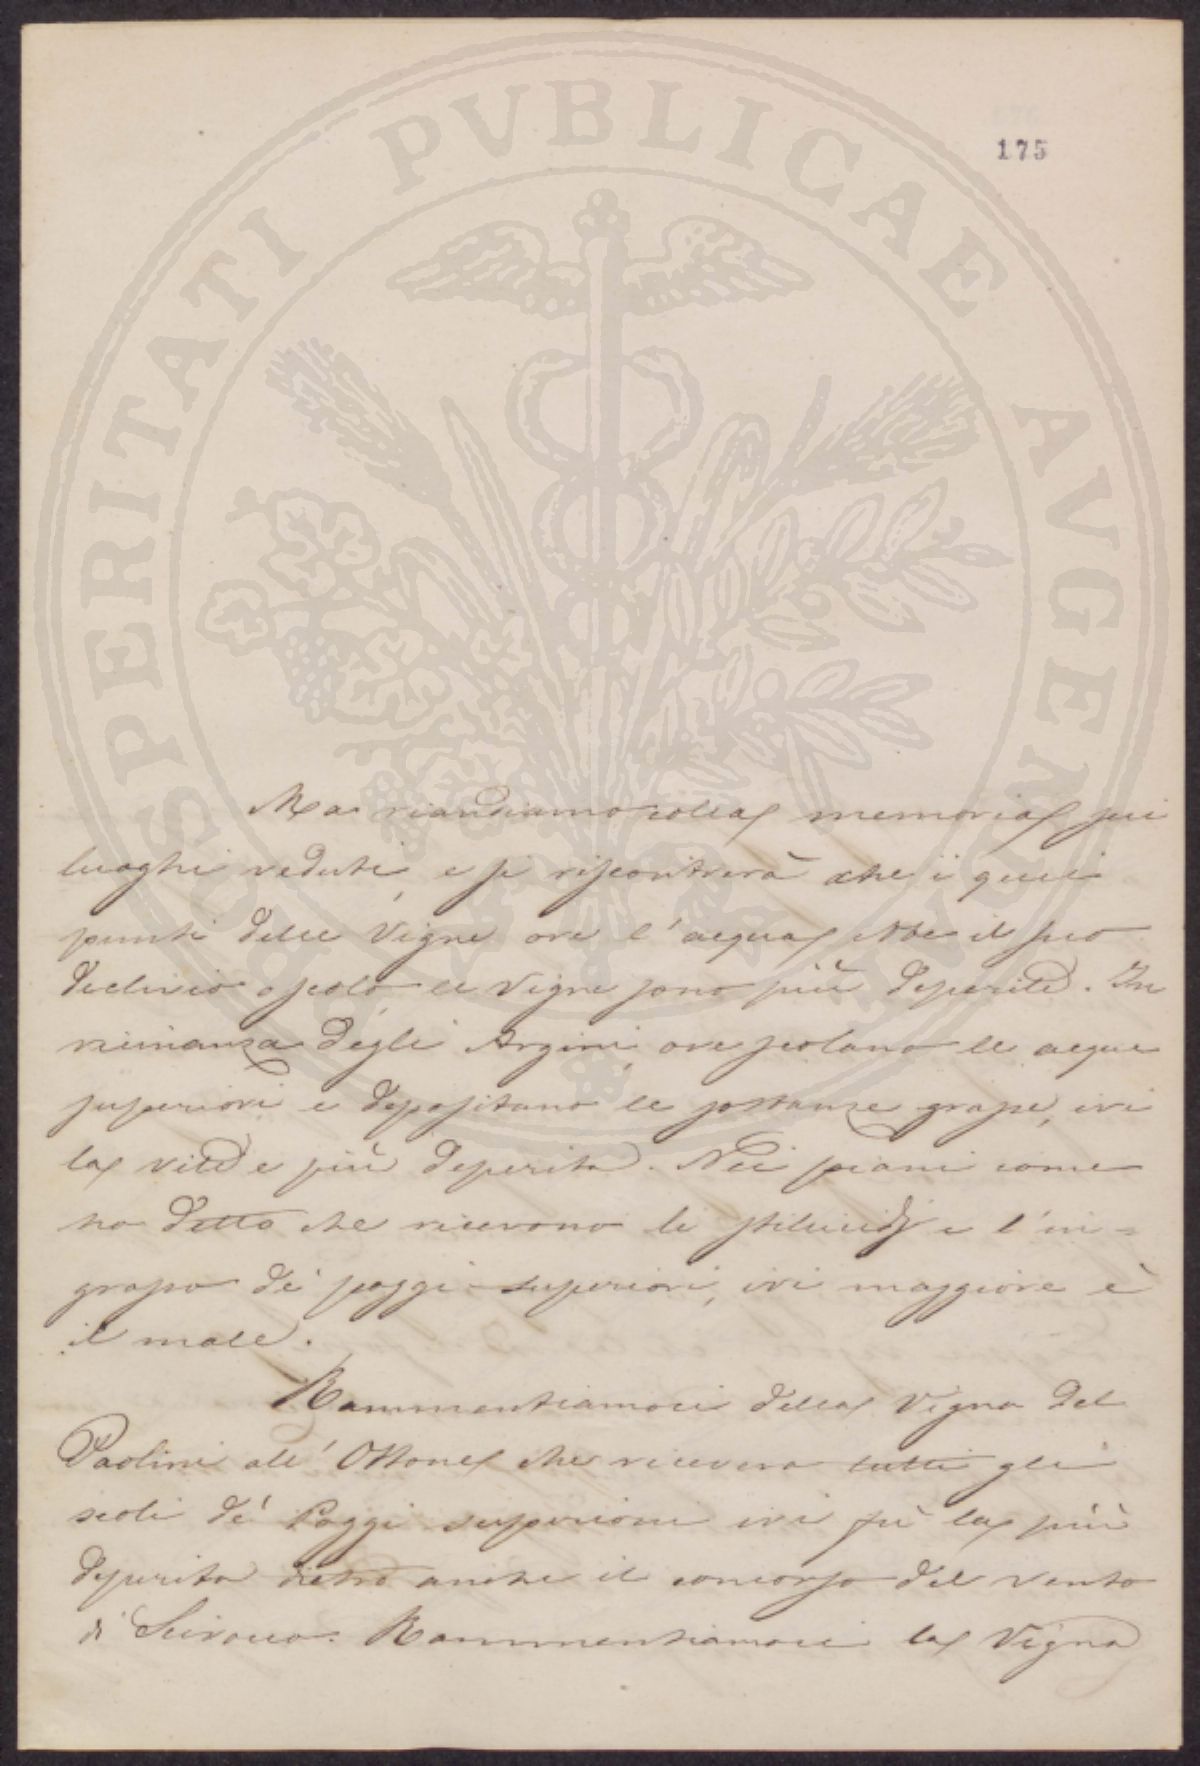 PROSPERITATI PVBLICAE AVGENDAE
175
Ma riandiamo colla memoria sui
luoghi veduti, e si riscontrerà che i quei
punti delle Vigne ove l'acqua ebbe il suo
declivio o scolo le Vigne sono più deperite. In
vicinanza degli Argini, ove scolano le acque
superiori e depositano le sostanze grasse, ivi
la vite è più deperita. Nei piani come
ho detto che ricevono li stillicidj e l'in=
grasso de' poggi superiori, ivi maggiore è
il male.
Rammentiamoci della Vigna del
Paolini all'Ottone che riceveva tutti gli
scoli de' Poggi superiori ivi fù la più
deperita dietro anche il concorso del vento
di Scirocco. Rammentiamoci la Vigna